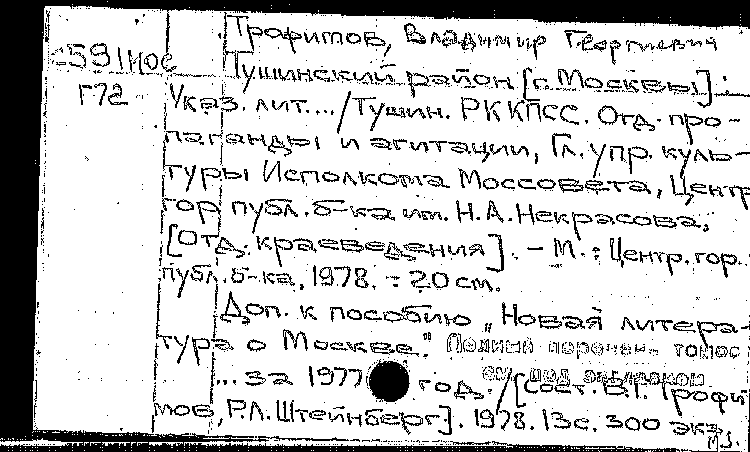 Трофимов, Владимир Георгиевич
591НОС
Тушинский район [г. Москвы] :
Г72
Указ. лит.../Тушин. РК КПСС. Отд. про-
паганды и агитации, Гл. упр. куль-
туры Исполкома Моссовета, Центр
гор публ. б-ка им. Н.А. Некрасова,
[Отд. краеведения]. - М. : Центр. гор.
публ. б-ка, 1978. - 20 см.
Доп. к пособию „Новая литера-
тура о Москве." Полный перечень томов
см. под заглавием
... за 1977 год. /[Сост. В.Г. Трофи
мов, Р.Л. Штейнберг]. 1978. 13с. 300 экз.